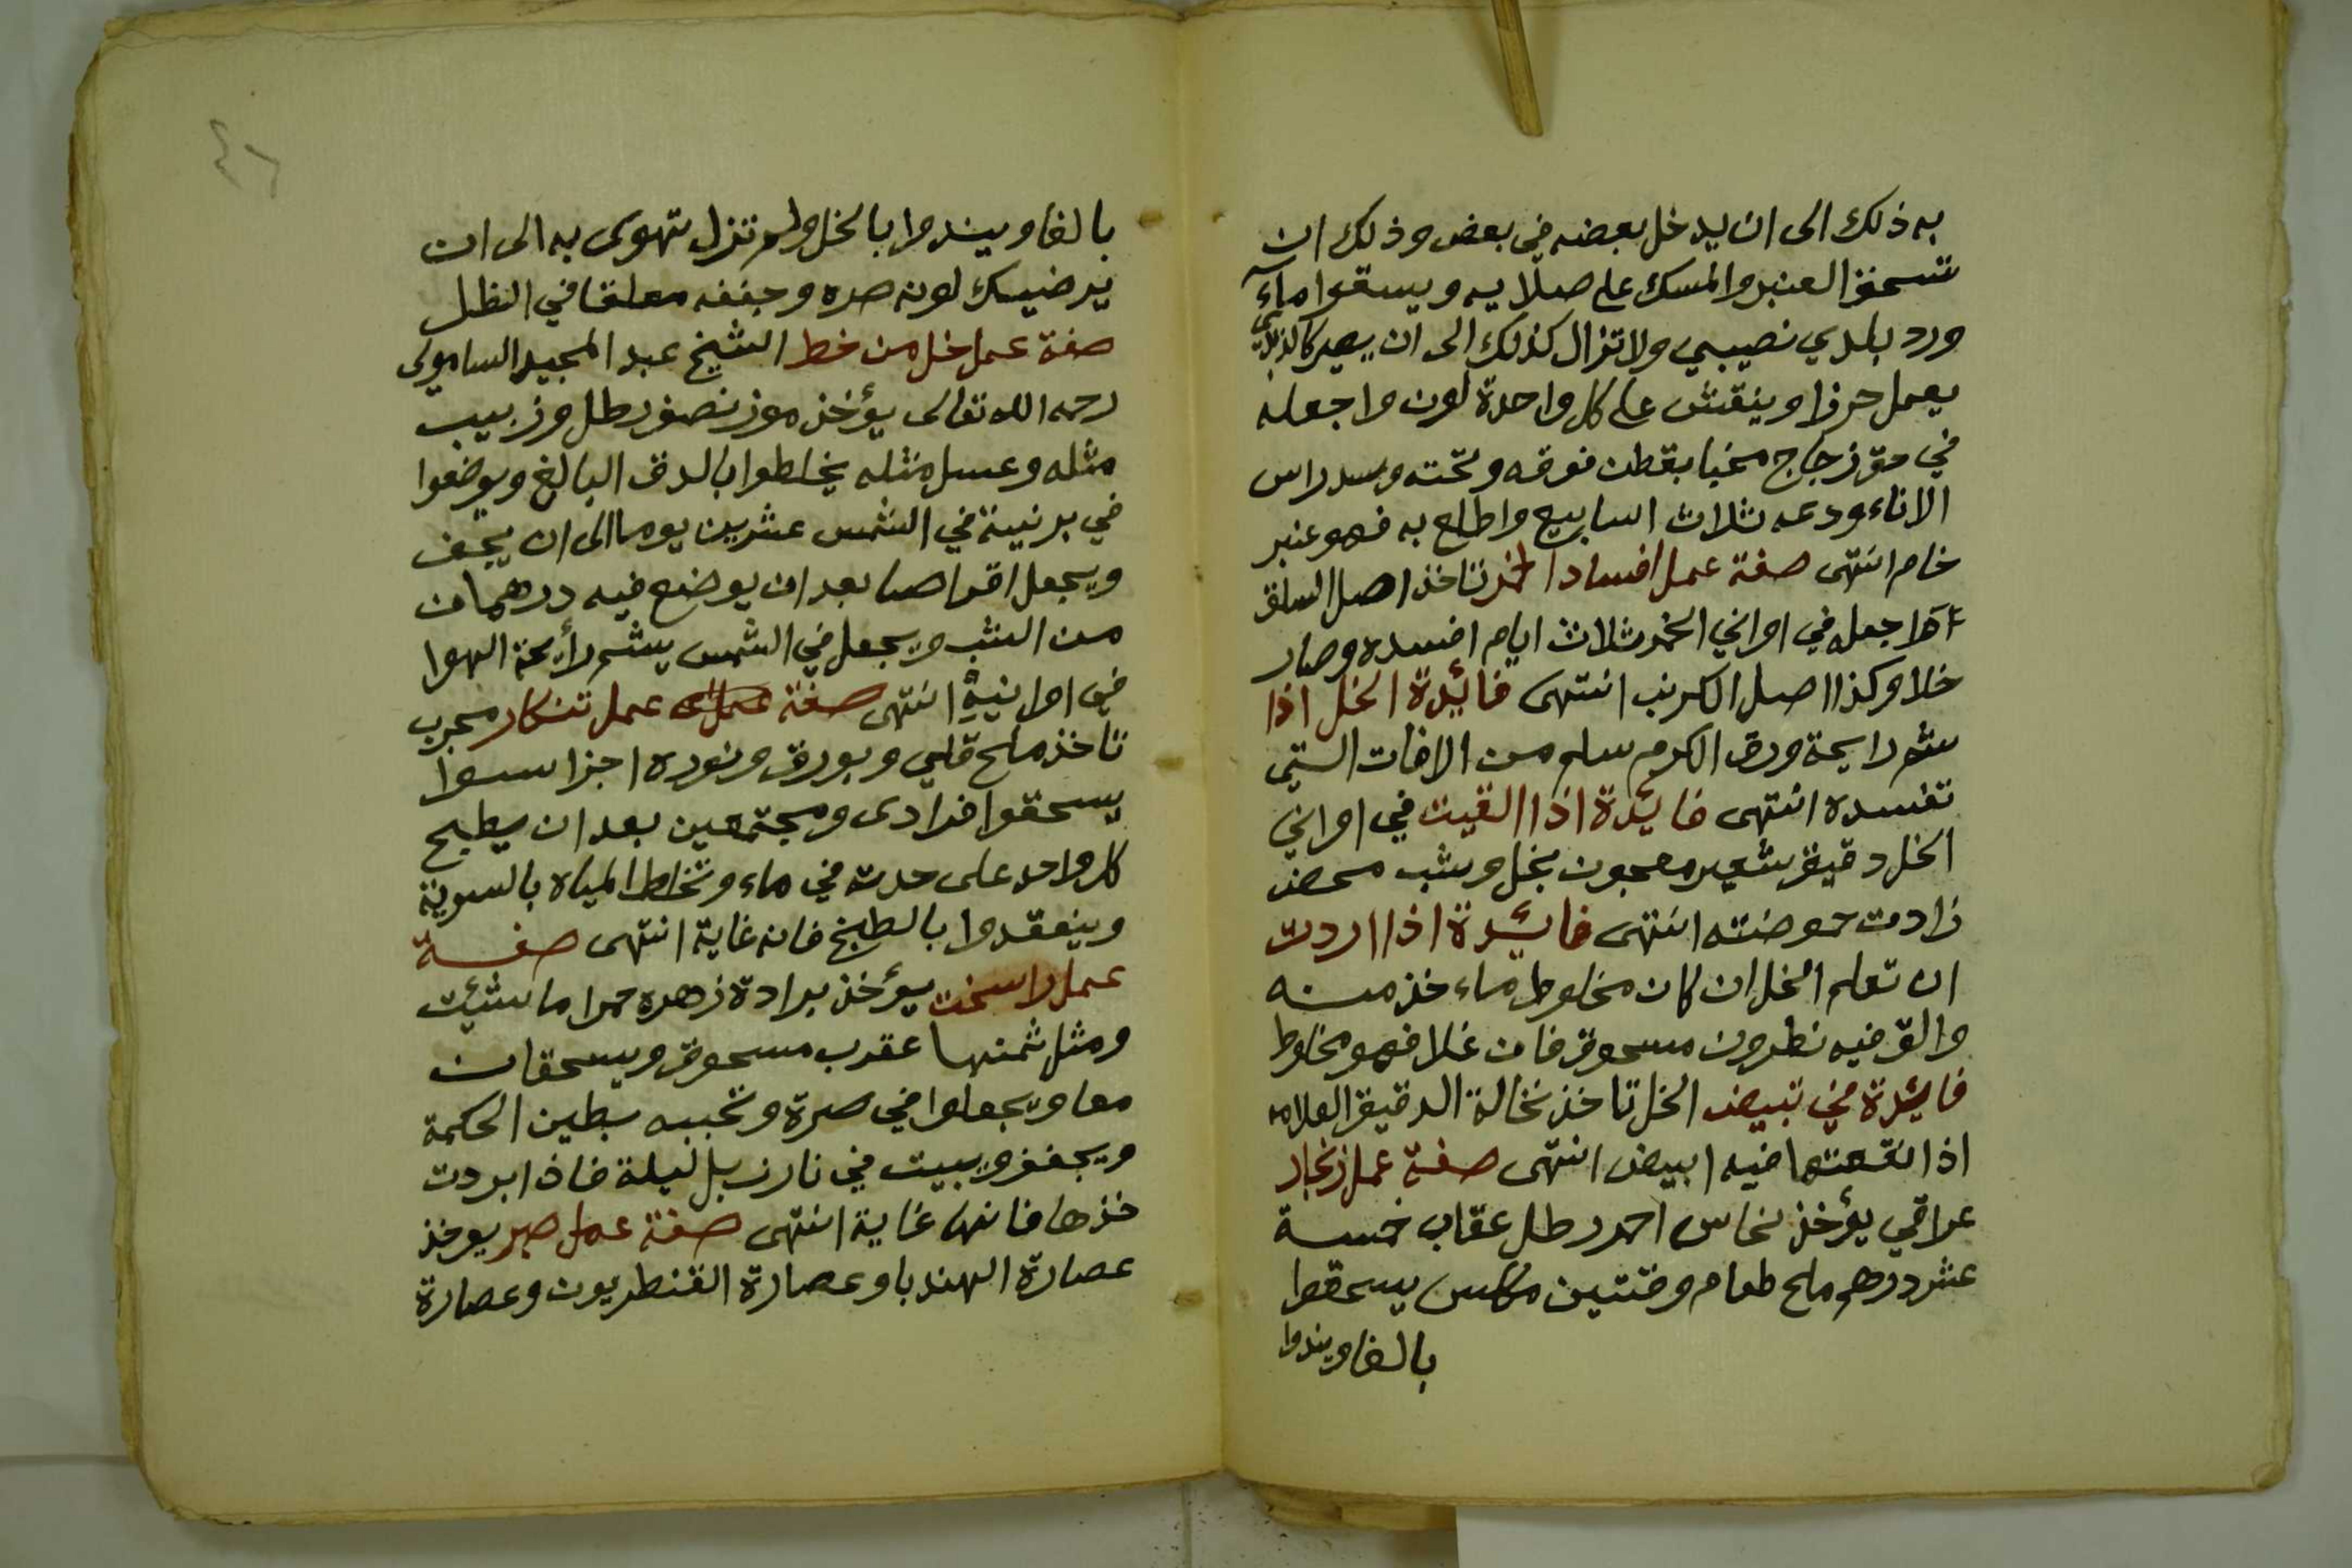 به ذلك الى ان يدخل بعضه في بعض وذلك ان
تسحق العنبر والمسك على صلايه ويسقوا ماء
ورد بلدي نصيبي ولا تزال كذلك الى ان يصير
يعمل حرزا وينقش على كل واحدة لون واجعله
في حق زجاج مخبا بقطن فوقه وتحته وسد راس
الاناء ودعه ثلاث اسابيع واطلع به فهو عنبر
خام انتهى صفة عمل افساد الخمر تاخذ اصل السلق
اجعله في اواني الخمر ثلاث ايام افسده وصار
خلا وكذا اصل الكرنب انتهى فائدة الخل اذا
شم رايحة ورق الكرم سلم من الافات التي
تفسده انتهى فائدة اذا القيت في اواني
الخل دقيق شعير معجون بخل وشب محض
زادت حموضته انتهى فائدة اذا اردت
ان تعلم الخل ان كان مخلوط ماء خذ منه
والق فيه نطرون مسحوق فان غلا فهو مخلوط
فائدة في تبيض الخل تاخذ نخالة الدقيق العلامه
اذا نقعتها فيه ابيض انتهى صفة عمل زنجار
عراقي يؤخذ نحاس احمر رطل عقاب خمسة
عشر درهم ملح طعام وقتين مكلس يسحقوا
بالغا ويندوا
٤٦
بالغا ويندوا بالخل ولم تزل تهوى به الى ان
يرضيك لونه صره وجففه معلقا في الظل
صفة عمل خل من خط الشيخ عبد المجيد السامولى
رحمه الله تعالى يؤخذ موز نصف رطل وزبيب
مثله وعسل مثله يخلطوا بالدق البالغ ويوضعوا
في برنية في الشمس عشرين يوما الى ان يجف
ويجعل اقراصا بعد ان يوضع فيه درهمان
من الشب ويجعل في الشمس يشم رأيحة الهوا
في اوانيه انتهى صفة عمل عمل تنكار مجرب
تاخذ ملح قلي وبورق ونوره اجزا سوا
يسحقوا فرادى ومجتمعين بعد ان يطبح
كل واحد على حدته في ماء وتخلط المياه بالسوية
وينعقدوا بالطبخ فانه غاية انتهى صفة
عمل راسخت يؤخذ برادة زهره حمرا ما شئت
ومثل ثمنها عقرب مسحوق ويسحقان
معا ويجعلوا في صرة وتحببه بطين الحكمة
ويجفف ويبيت في نار زبل ليلة فاذا بردت
خذها فانها غاية انتهى صفة عمل صبر يوخذ
عصارة الهندبا وعصارة القنطريون وعصارة